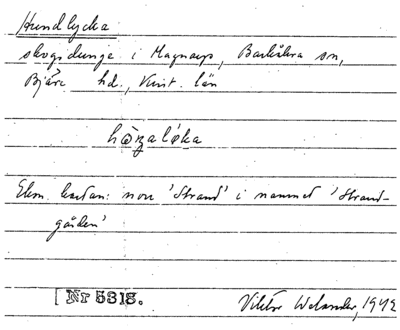 Hundlycka
skogsdunge i Magnarp, Barkåkra sn,
Bjäre hd., Krist. län
Ekon. kartan: norr 'Strand' i namnet 'Strand-
gården'
Nr 5318.
Viktor Welander, 1942